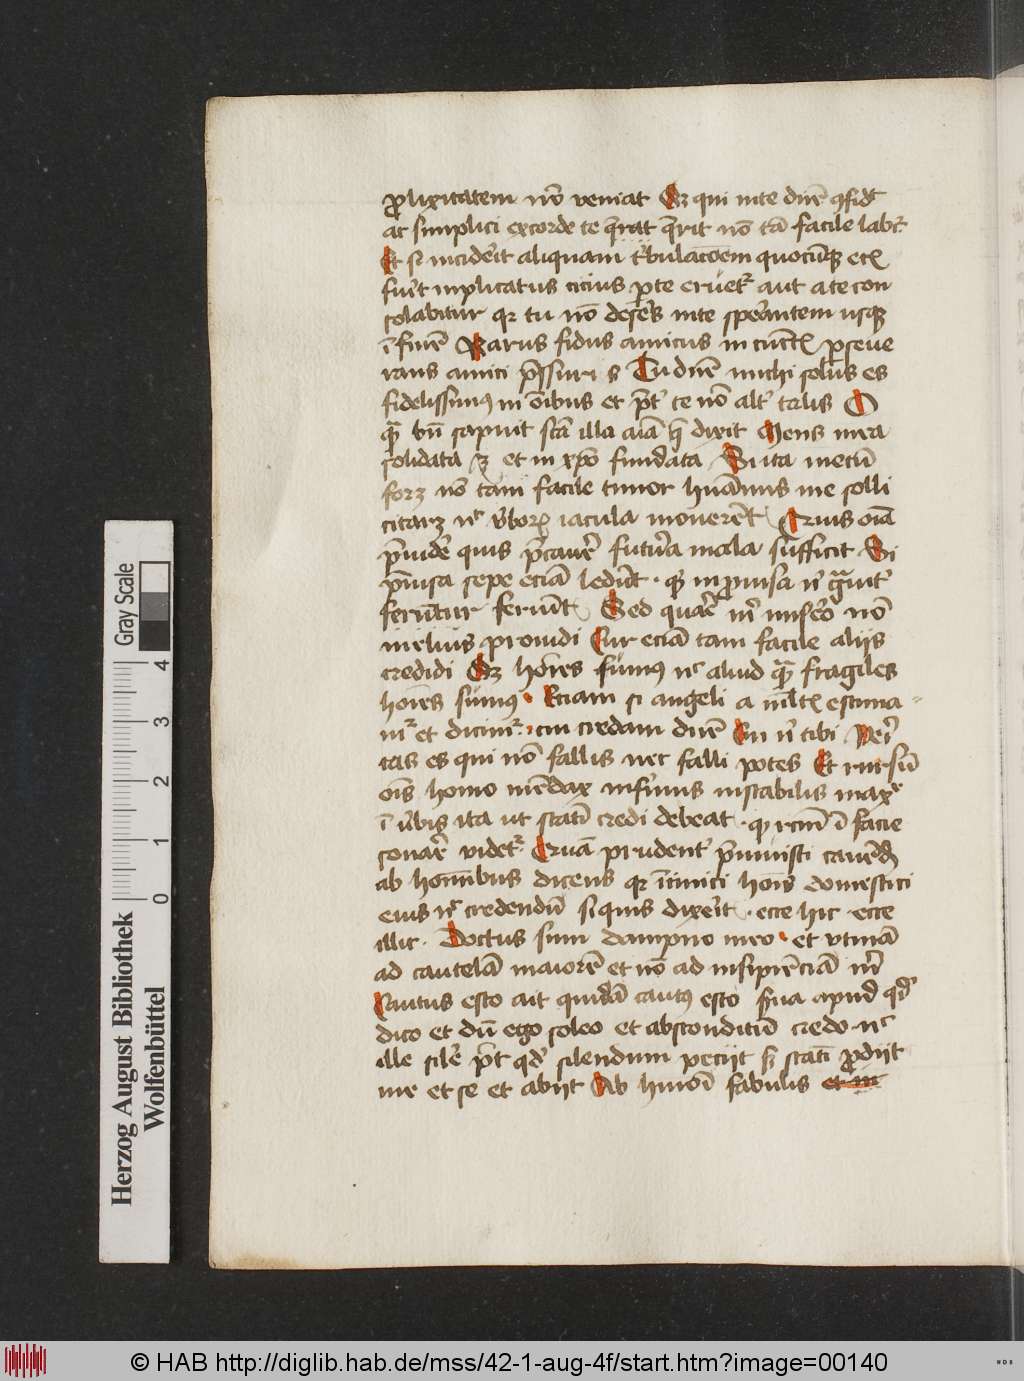 prolixitatem nō veniat Sz qui inte dnē ɔfidt
ac simplici ex corde te q̄rat q̄rit nō tā facile labr̄
Et si inciderit aliquam t'bulacōem quocūqꝫ ecā
fuīt inplicatus cicius p te eruet' aut a te con
solabitur qr tu nō desēs inte sperantem usqꝫ
ī finē Rarus fidus amicus in cunct' p seue
rans amici pssuris Tu dnē michi solus es
fidelissimꝰ in oībus et pt' te nō alt' talis O
qͣ bn̄ sapuit scā illa aīa q̄ dixit Mens mea
solidata ꝫ et in xpō fundata Si ita mecū
forꝫ nō tam facile timor huānus me solli
citarꝫ nͨ v'borꝫ iacula moverēt Quis oīa
p̄uidē quis p̄cavē futura mala sufficit Si
p̄uisa sepe eciā ledūt qͥ inprouisa nͥ gͣuit'
feruntur feriūt Sed quare mͥ misero nō
melius prouidi Cur eciā tam facile alijs
credidi Sz hoīes sumꝰ nͨ aliud qͣ fragiles
hoīes sumꝰ Eciam si angeli a mlt' estima
mͬ et dicimͬ cui credam dnē Cui nͥ tibi Veri
tas es qui nō fallis nec falli potes Et rursū
oīs homo mēdax infirmus instabilis maxͤ
ī v'bis ita ut statī credi debeat qͥ rcm̄ ī facie
sonare videt' Quā prudent' p̄muisti cavēdꝫ
ab homībus dicens qr inimici hoīs domestici
eius nͨ credendū si quis dixerit ecce hic ecce
illic Doctus sum dampno meo et vtinā
ad cautelā maiorē et nō ad insipienciā mͥ
Cautus esto ait quidā cautꝰ esto s'ua apud qd̄
dico et dū ego sileo et absconditū credo nͨ
ille silē pt' qd' silendum peciit sꝫ statī prodijt
me et se et abijt Ab hmōi fabulis et in
Herzog August Bibliothek
Wolfenbüttel
0 1 2 3 4
Gray Scale
© HAB http://diglib.hab.de/mss/42-1-aug-4f/start.htm?image=00140